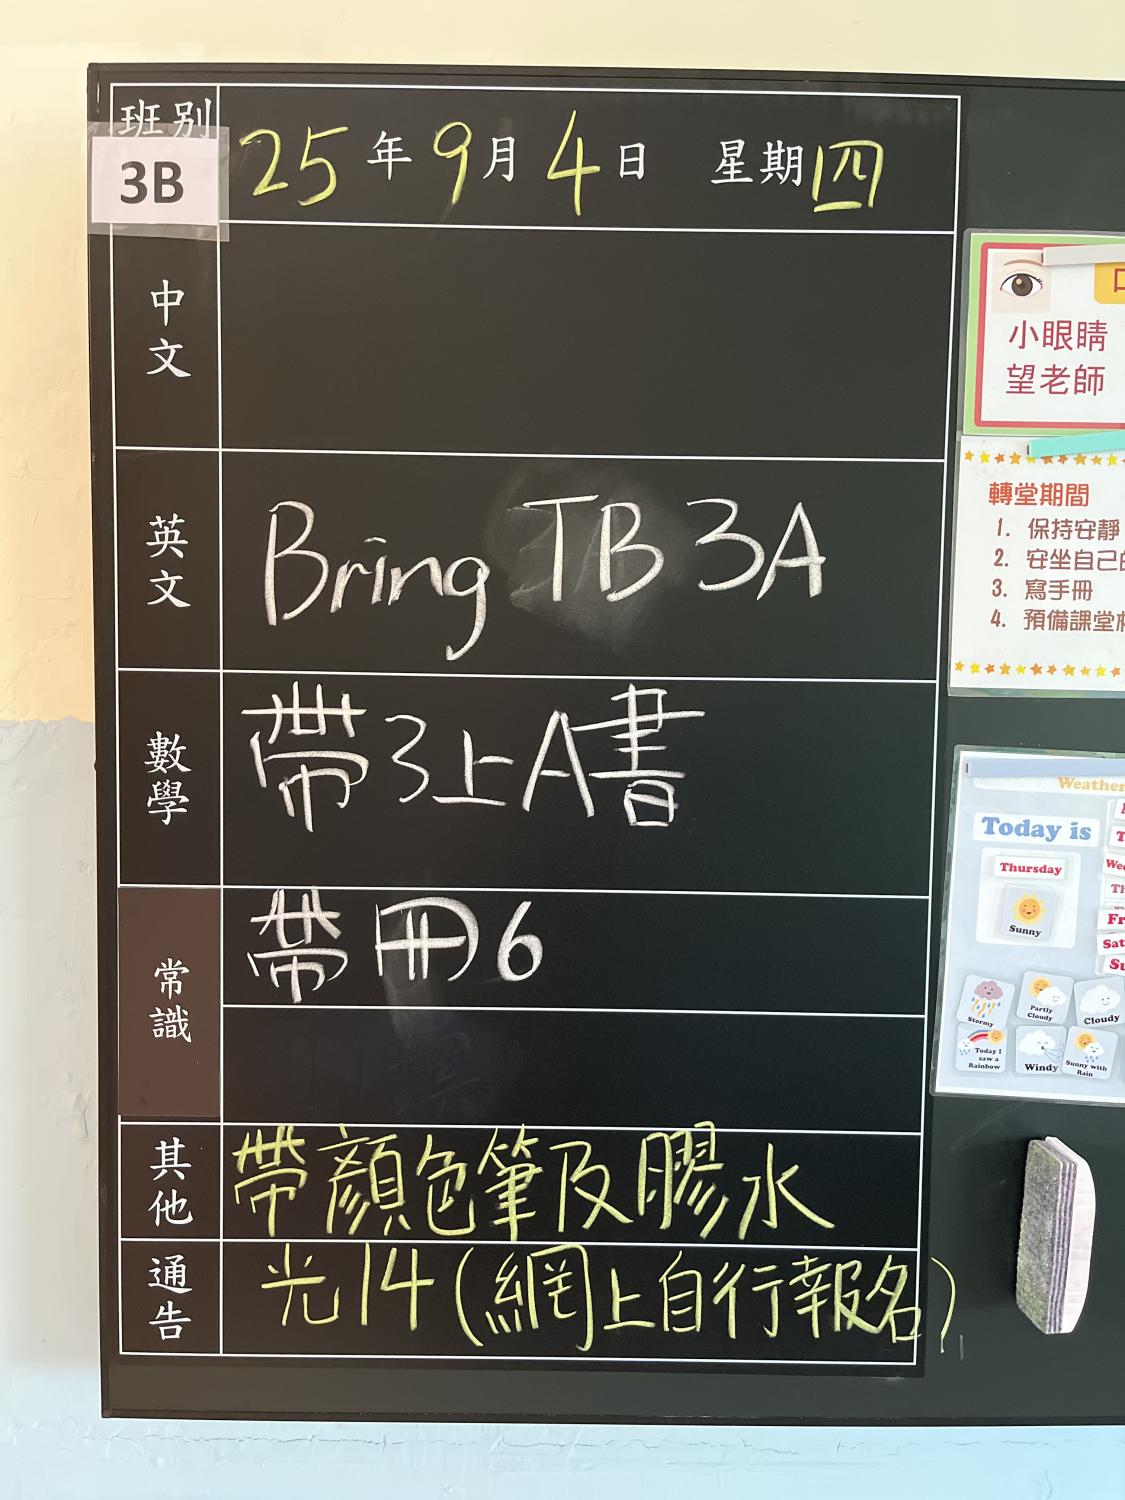 班別
3B
25年9月4日 星期四
中文
英文
Bring TB 3A
數學
帶3上A書
常識
帶冊6
其他
帶顏色筆及膠水
通告
光14(網上自行報名)
小眼睛
望老師
轉堂期間
1. 保持安靜
2. 安坐自己
3. 寫手冊
4. 預備課堂
Weather
Today is
Thursday
Sunny
Stormy
Partly Cloudy
Cloudy
Today I saw a Rainbow
Windy
Sunny with Rain